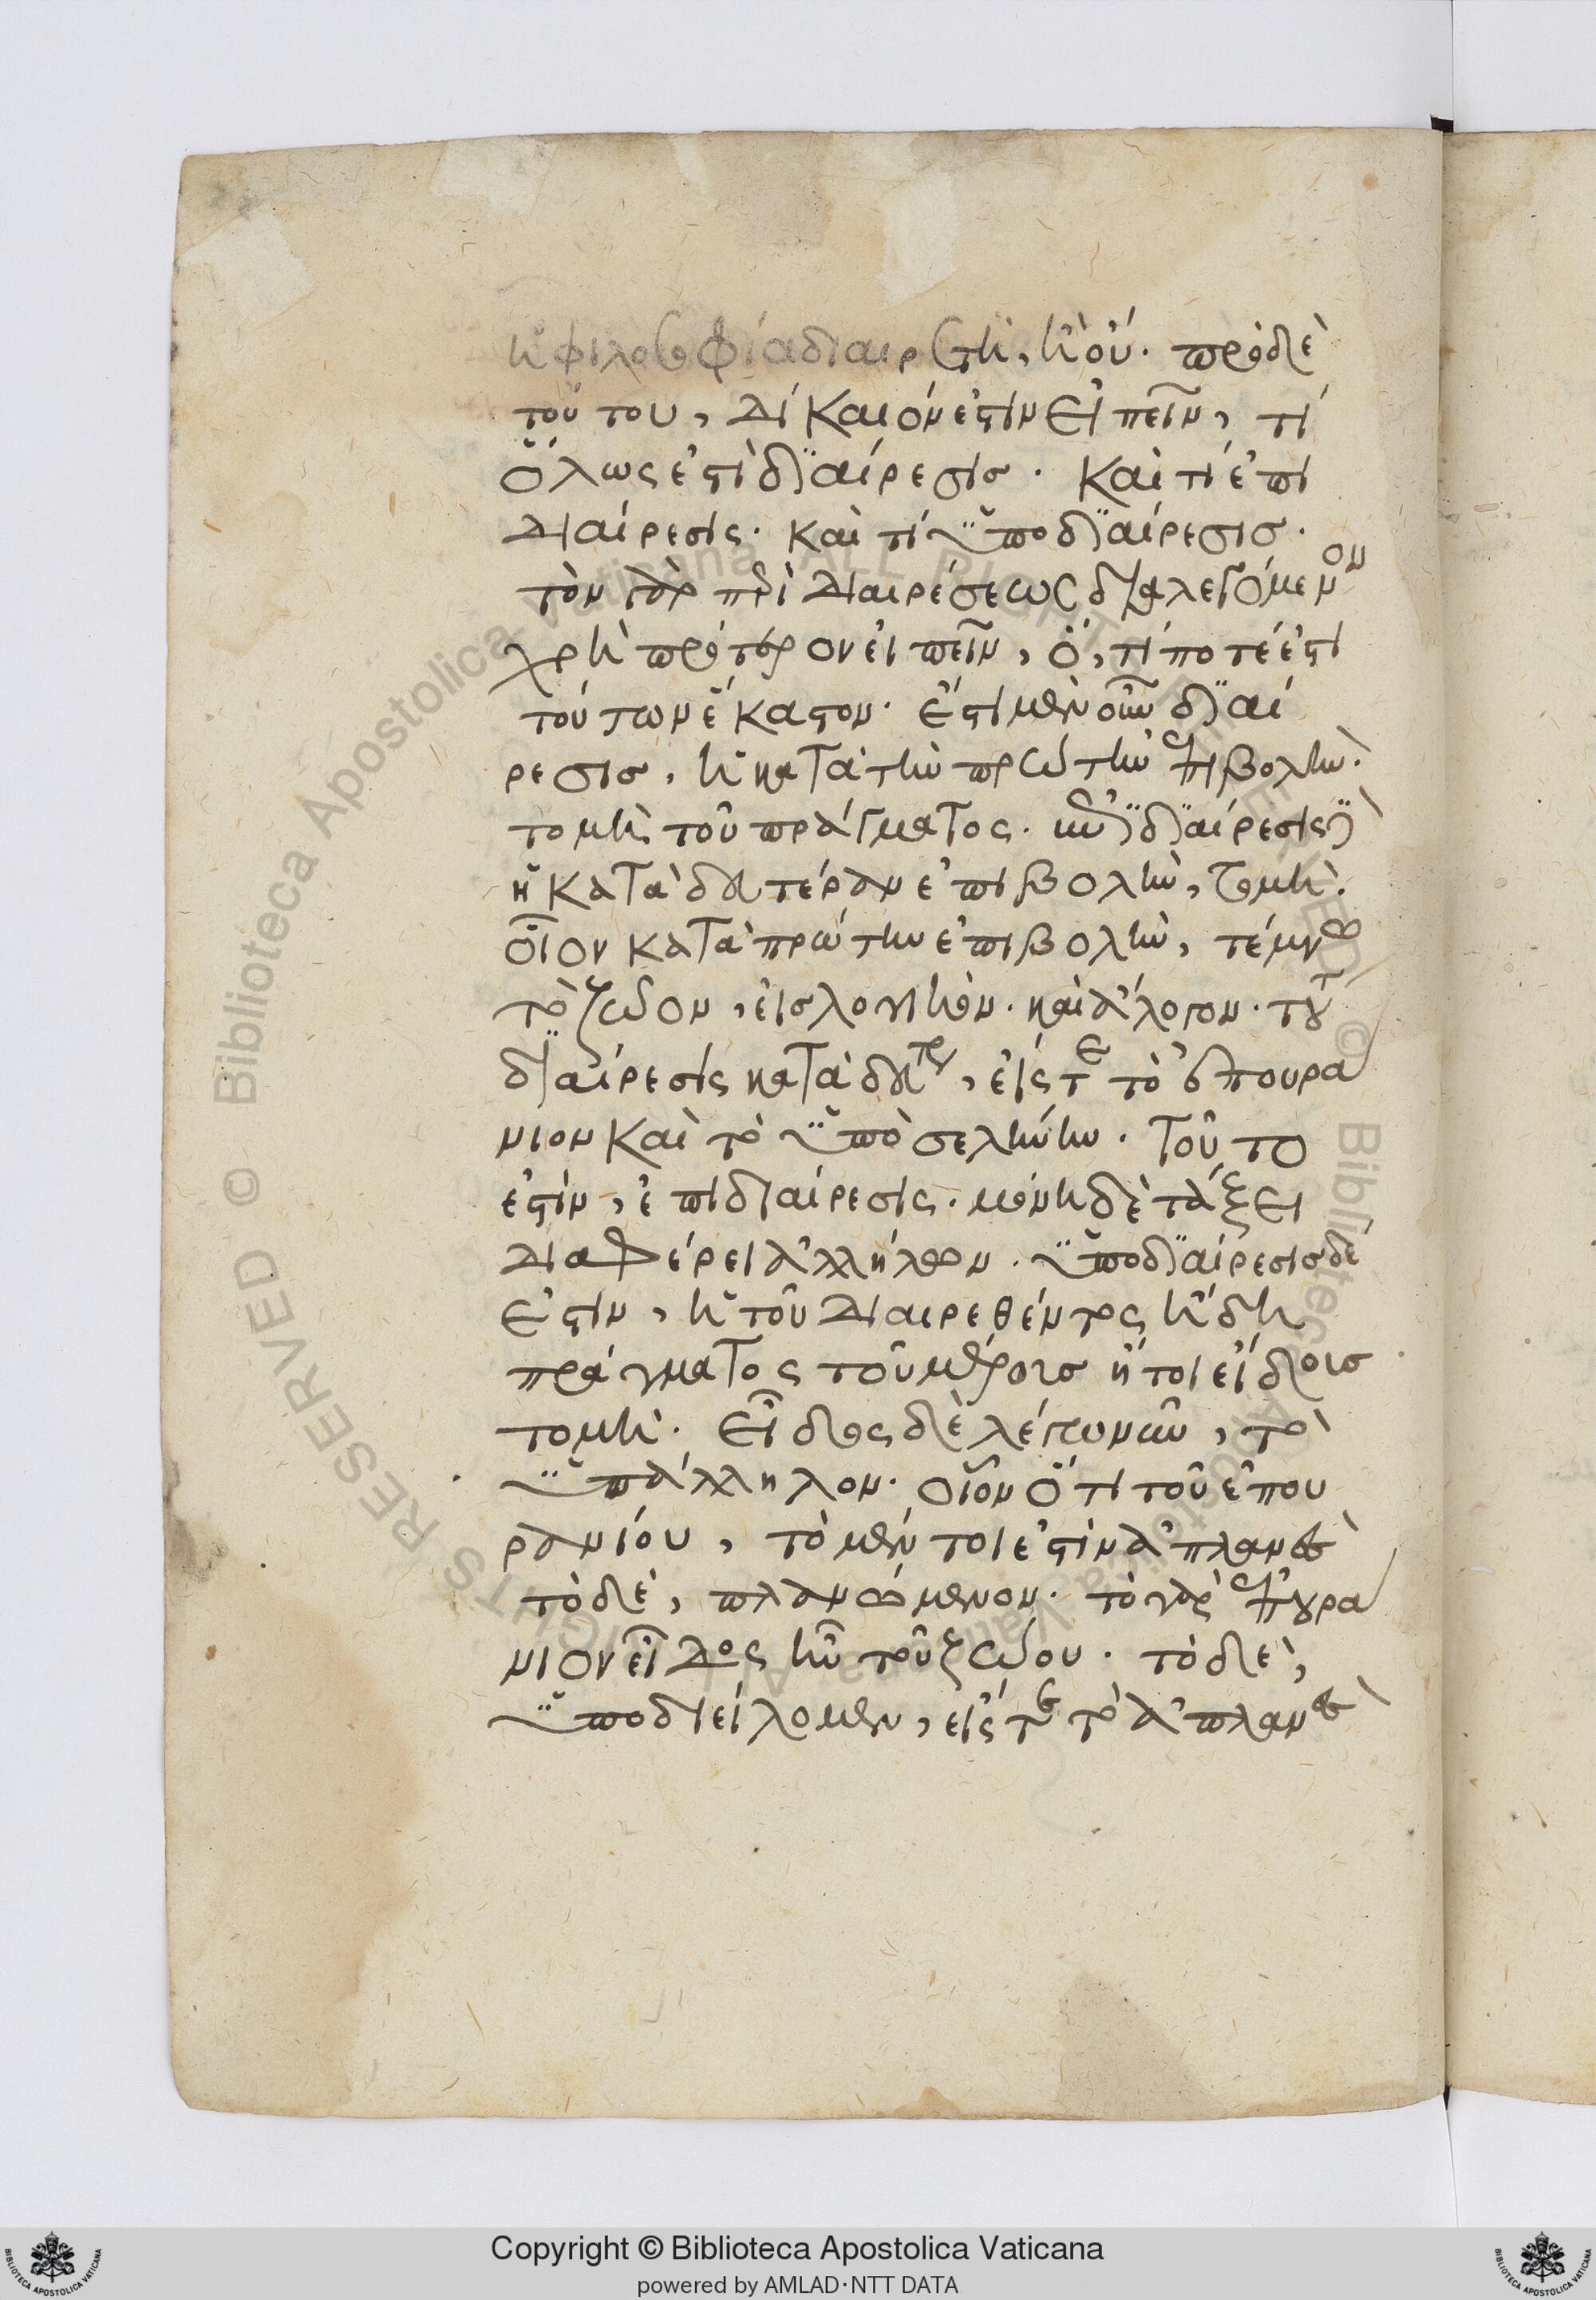 ἡ φιλοσοφία διαιρετὴ, ἢ οὔ. πρὸ δὲ
τούτου, δίκαιόν ἐστιν εἰπεῖν, τί
ὅλως ἐστὶ διαίρεσις. καὶ τί ἐπι
διαίρεσις. καὶ τί ὑποδιαίρεσις.
τὸν γὰρ περὶ διαιρέσεως διαλεγόμενον
χρὴ πρότερον εἰπεῖν, ὅ,τι ποτέ ἐστι
τούτων ἕκαστον. ἔστι μὲν οὖν διαί
ρεσις, ἡ κατὰ τὴν πρώτην ἐπιβολὴν
τομὴ τοῦ πράγματος. διαίρεσις
ἡ κατὰ δευτέραν ἐπιβολὴν, τομή.
οἷον κατὰ πρώτην ἐπιβολὴν, τέμνω
τὸ ζῶον, εἰς λογικὸν. καὶ ἄλογον. τοῦτ
διαίρεσις κατὰ δευτερ, εἴς τε τὸ ἐπουρά
νιον καὶ τὸ ὑπὸ σελήνην. τοῦτο
ἐστὶν, ἐπιδιαίρεσις. μόνη δὲ τάξει
διαφέρει ἀλλήλων. ὑποδιαίρεσις δέ
ἐστιν, ἡ τοῦ διαιρεθέντος ἤδη
πράγματος τοῦ μέρους ἤτοι εἴδους
τομὴ. εἶδος δὲ λέγω νῦν, τὸ
ὑπάλληλον. οἷον ὅτι τοῦ ἐπου
ρανίου, τὸ μέν τοι ἐστὶν ἀπλανὲς
τὸ δὲ, πλανώμενον. τὸ γὰρ ἐπουρά
νιον εἶδος ἦν τοῦ ζώου. τὸ δὲ,
ὑποδιείλομεν, εἴς τε τὸ ἀπλανὲς
Copyright © Biblioteca Apostolica Vaticana
powered by AMLAD·NTT DATA